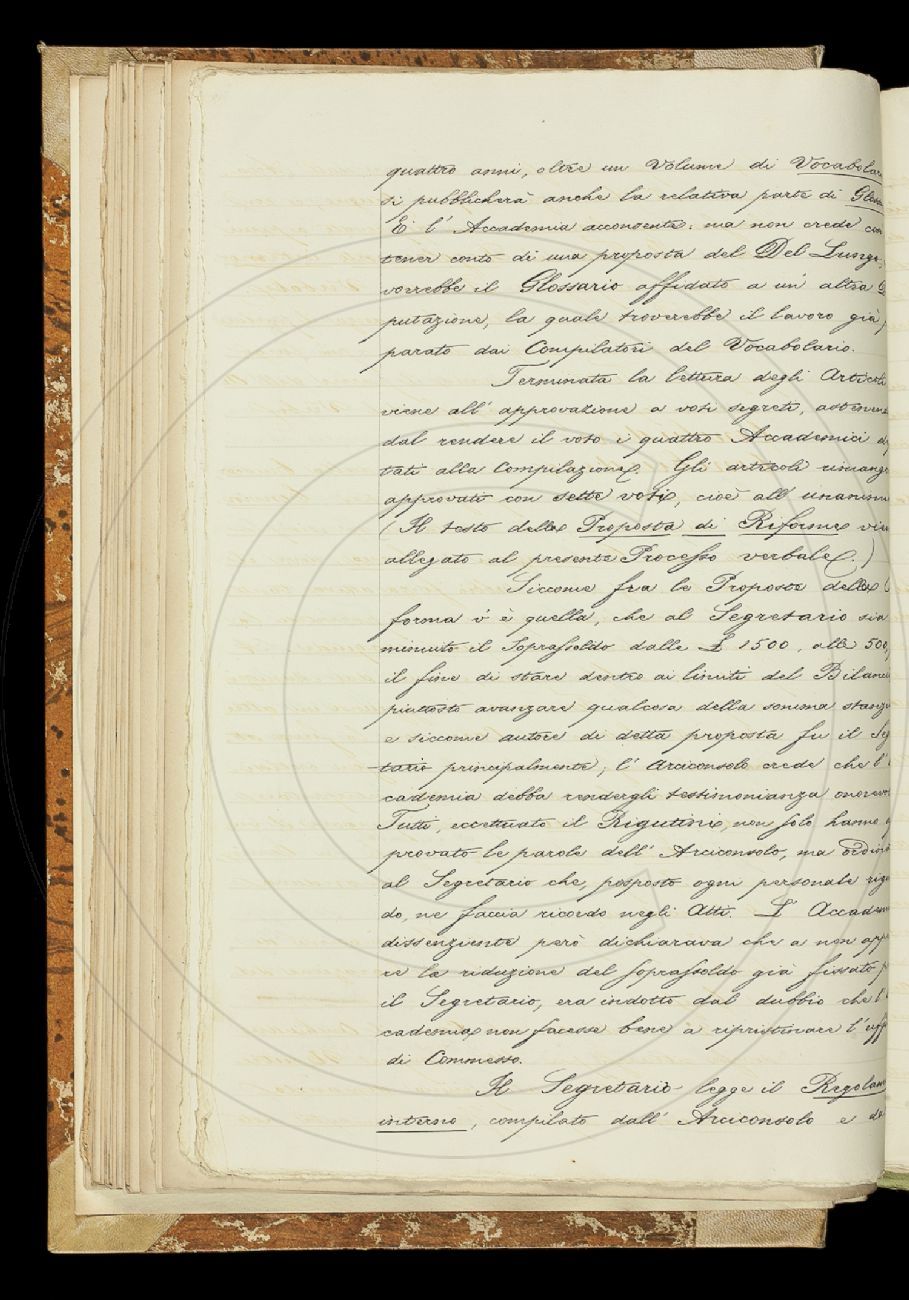 quattro anni, oltre un Volume di Vocabolar
si pubblicherà anche la relativa parte di Gloss
E l' Accademia acconsente: ma non crede con
tener conto di una proposta del Del Lungo,
vorrebbe il Glossario affidato a un' altra D
putazione, la quale troverebbe il lavoro già p
parato dai Compilatori del Vocabolario.
Terminata la lettura degli Articoli
viene all' approvazione a voti segreti, astenen
dal rendere il voto i quattro Accademici d
tati alla Compilazione. Gli articoli rimang
approvati con sette voti, cioè all' unanim
(Il testo delle Proposta di Riforme vie
allegato al presente Processo verbale.)
Siccome fra le Proposte delle
forma v' è quella, che al Segretario sia
minuito il soprassoldo dalle £ 1500, alle 500,
il fine di stare dentro ai limiti del Bilanci
piuttosto avanzare qualcosa della somma stanzi
e siccome autore di detta proposta fu il Seg
tario principalmente; l' Arciconsolo crede che l'
cademia debba rendergli testimonianza onorev
Tutti, eccettuato il Rigutini, non solo hanno
provato le parole dell' Arciconsolo, ma ordin
al Segretario che, posposto ogni personale rig
do, ne faccia ricordo negli Atti. L' Accadem
dissenziente però dichiarava che a non app
re la riduzione del soprassoldo già fissato p
il Segretario, era indotto dal dubbio che l'
cademia non facesse bene a ripristinare l' uff
di Commesso.
Il Segretario legge il Regolam
interno, compilato dall' Arciconsolo e da